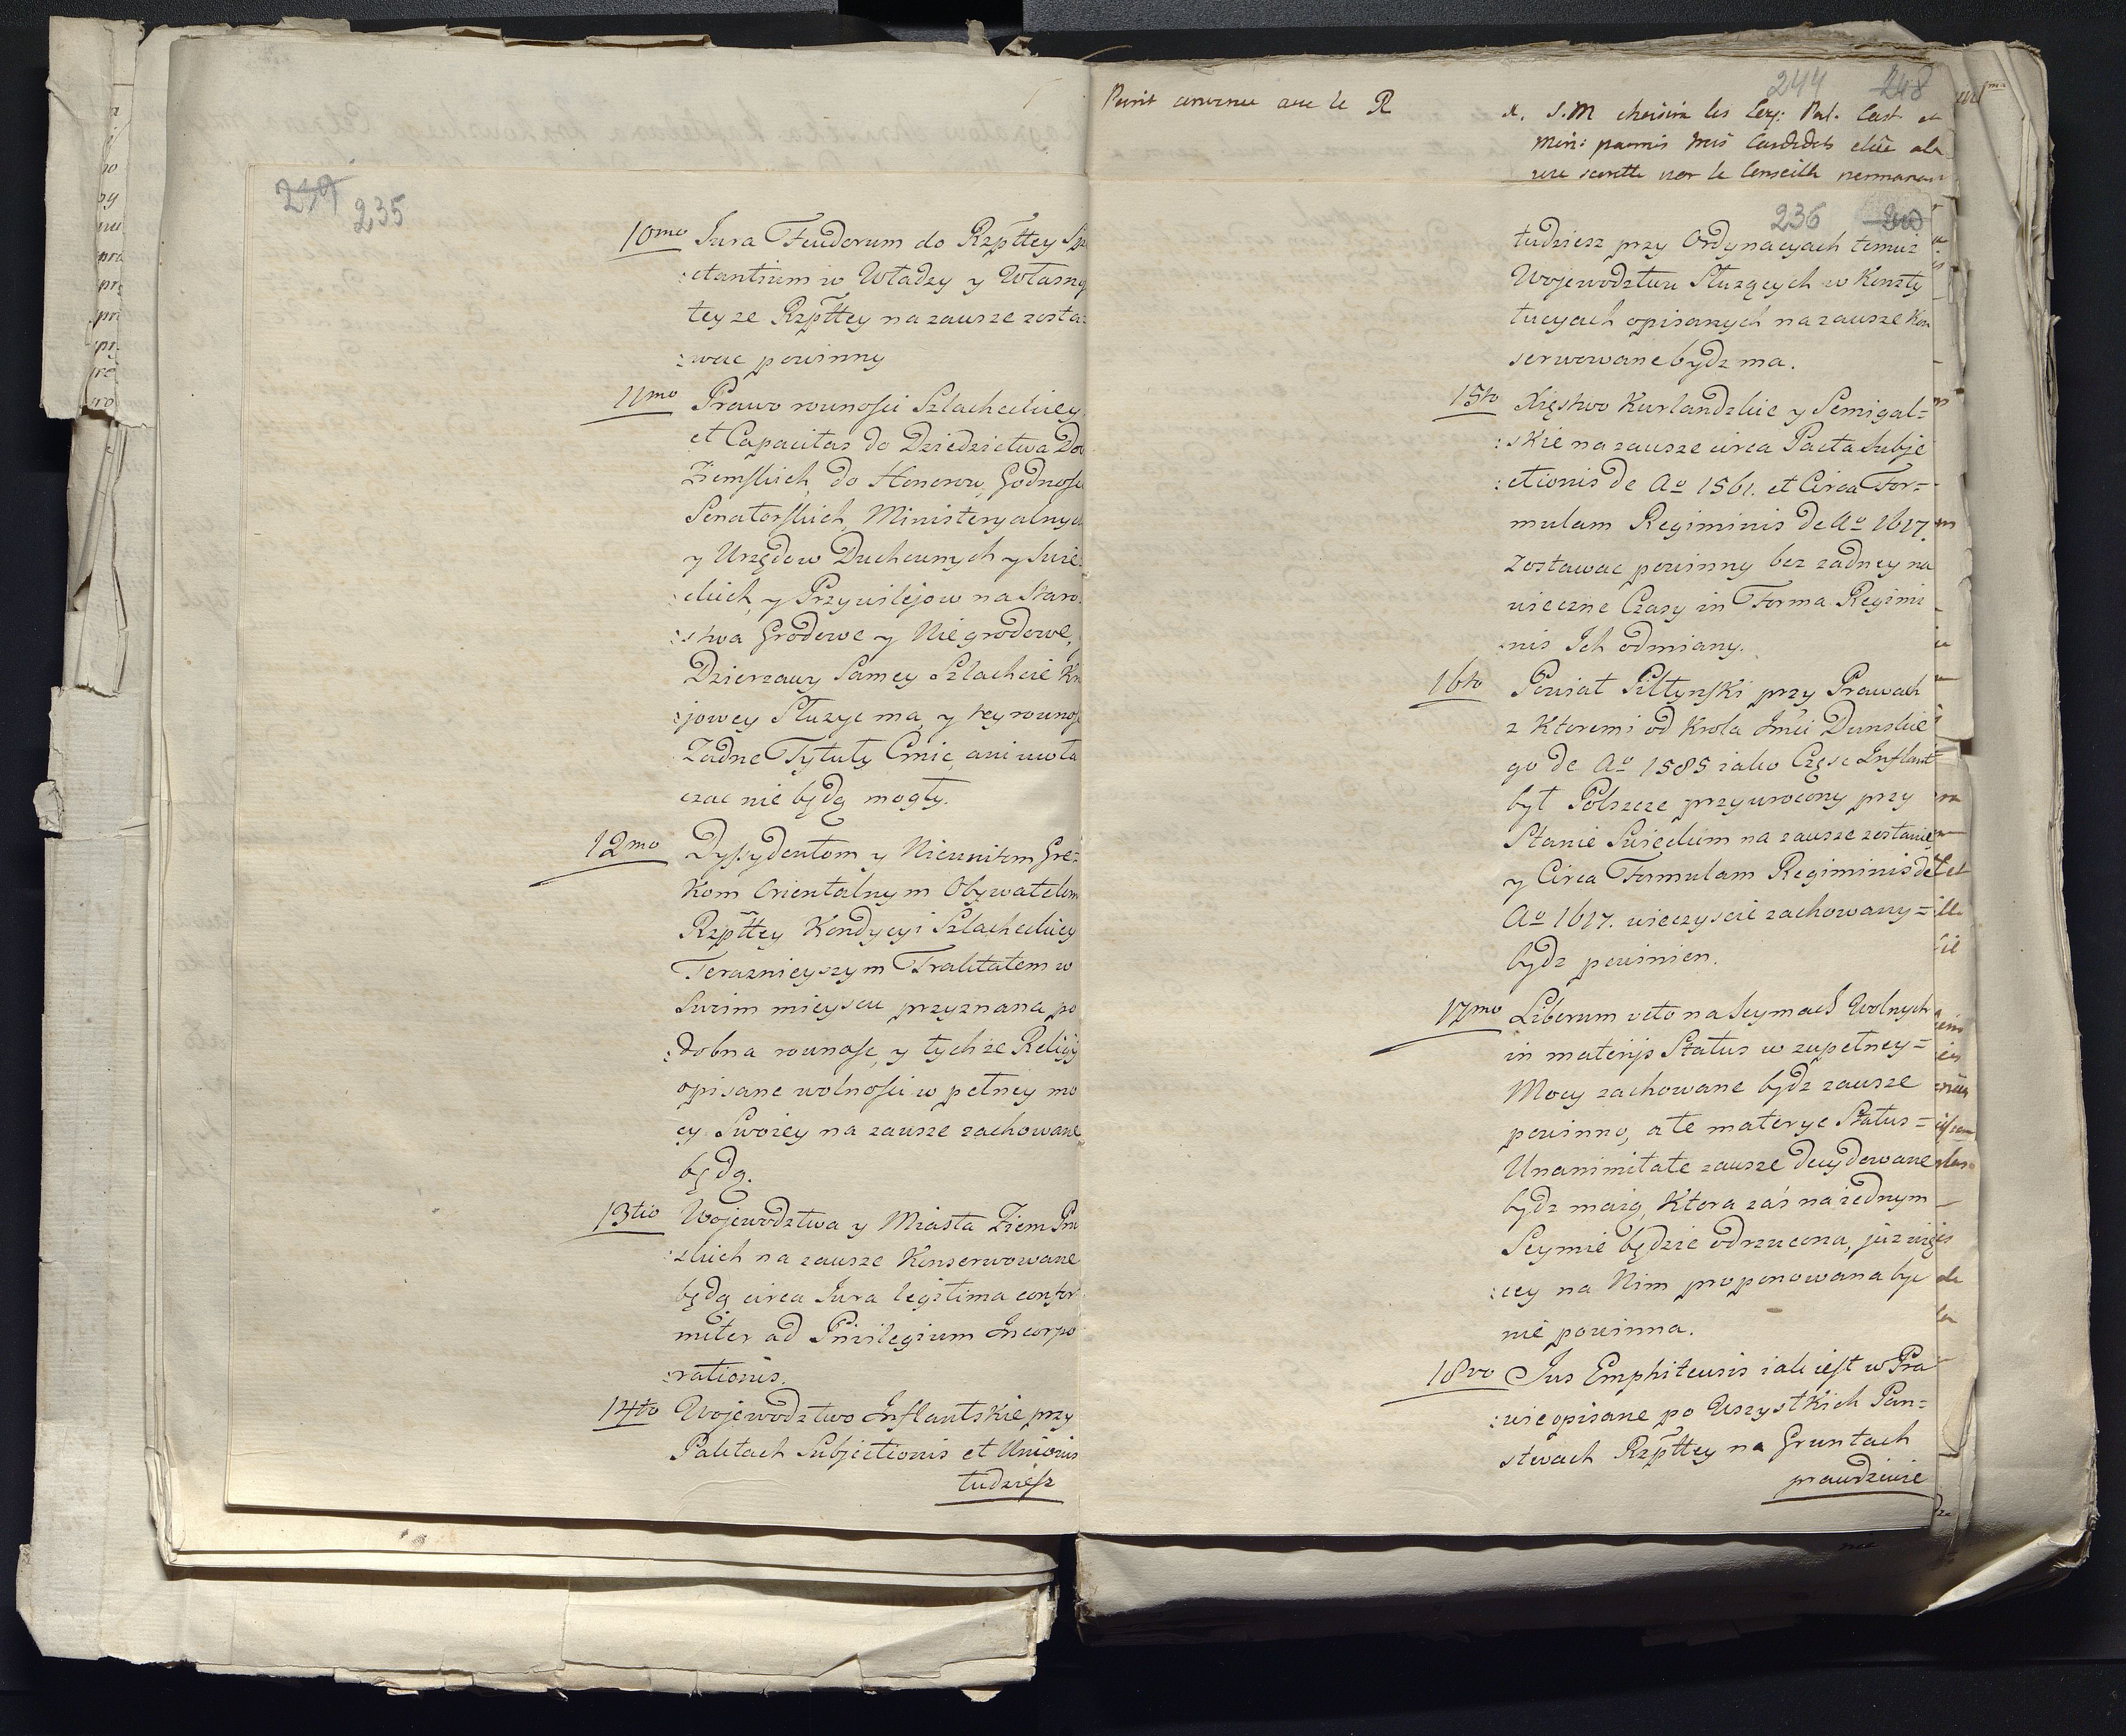 219 235
10mo Jura Feudorum do Rzpltey Spe
:ctantium w Władzy y Własny
teyze Rzpltey na zawsze zosta:
:wac powinny
11mo Prawo rownosci Szlacheckiey
et Capacitas do Dziedzictwa Dobr
Ziemskich, do Honorow, Godnosci
Senatorskich, Ministeryalnych
y Urzędow Duchownych y Swie:
:ckich, y Przywilejow na Staro:
:stwa Grodowe y Niegrodowe,
Dzierzawy Samey Szlachcie Kra
:jowey Słuzyc ma, y tey rownosc
Zadne Tytuły Cmic, ani uwła
czac nie będą mogły.
12mo Dyssydentom y Nieunitom Gre:
kom Orientalnym Obywatelom
Rzpltey Kondycyi Szlacheckiey
Teraznieyszym Traktatem w
Swoim mieyscu przyznana po
:dobna rownosc, y tychze Religij
opisane wolnosci w pełney mo
cy Swoiey na zawsze zachowane
będą.
13tio Woiewodztwa y Miasta Ziem Pru
:skich na zawsze Konserwowane
będą circa Jura legitima confor
miter ad Privilegium Incorpo
:rationis.
14to Woiewodztwo Inflantskie przy
Paktach Subjectionis et Unionis
tudziesz
Punit convenu avec le R
244 248
x. S.M choisira les Eveq: Pal. Cast. et
Min: parmis trois Candidats elûs ala
par le Conseille permanan
236
tudziesz przy Ordynacyach temuz
Woiewodztwu Słuzących w Konsty
tucyach opisanych na zawsze Kon
serwowane bydz ma.
15to Xięstwo Kurlandzkie y Semigal=
:skie na zawsze circa Pacta Subje
:ctionis de Ao 1561. et Circa For=
mulam Regiminis de Ao 1617.
zostawac powinny bez zadney na
wieczne Czasy in Forma Regimi
:nis Ich odmiany.
16to Powiat Piltynski przy Prawach
z Ktoremi od Krola Jmci Dunskie
go de Ao 1585 iako Częsc Inflant
był Polszcze przywrocony przy
Stanie Swieckim na zawsze zostanie
y Circa Formulam Regiminis de
Ao 1617. wieczyscie zachowany=
bydz powinien.
17mo Liberum veto na Seymach Wolnych
in materijs Status w zupełney=
Mocy zachowane bydz zawsze
powinno, a te materye Status=
Unanimitate zawsze decydowane
bydz maią, Ktora zaś na iednym
Seymie będzie odrzucona, juz wię
:cey na Nim proponowana byc
nie powinna.
18vo Jus Emphiteusis iak iest w Pra
:wie opisane po Wszystkich Pan=
stwach Rzpltey na Gruntach
prawdziwie